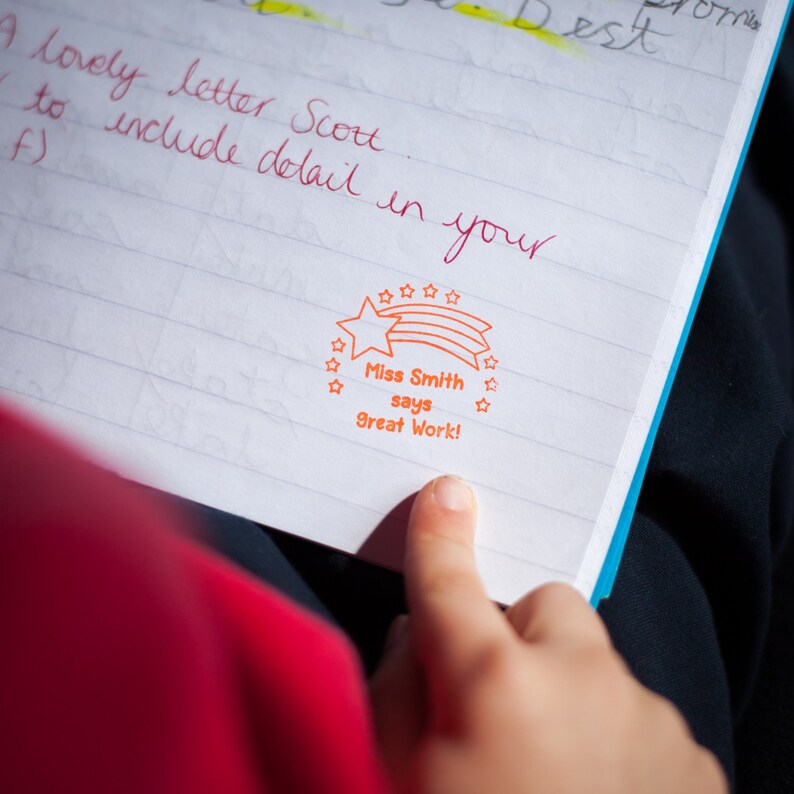 promise
Best
A lovely letter Scott
to include detail in your
f)
Miss Smith
says
great Work!